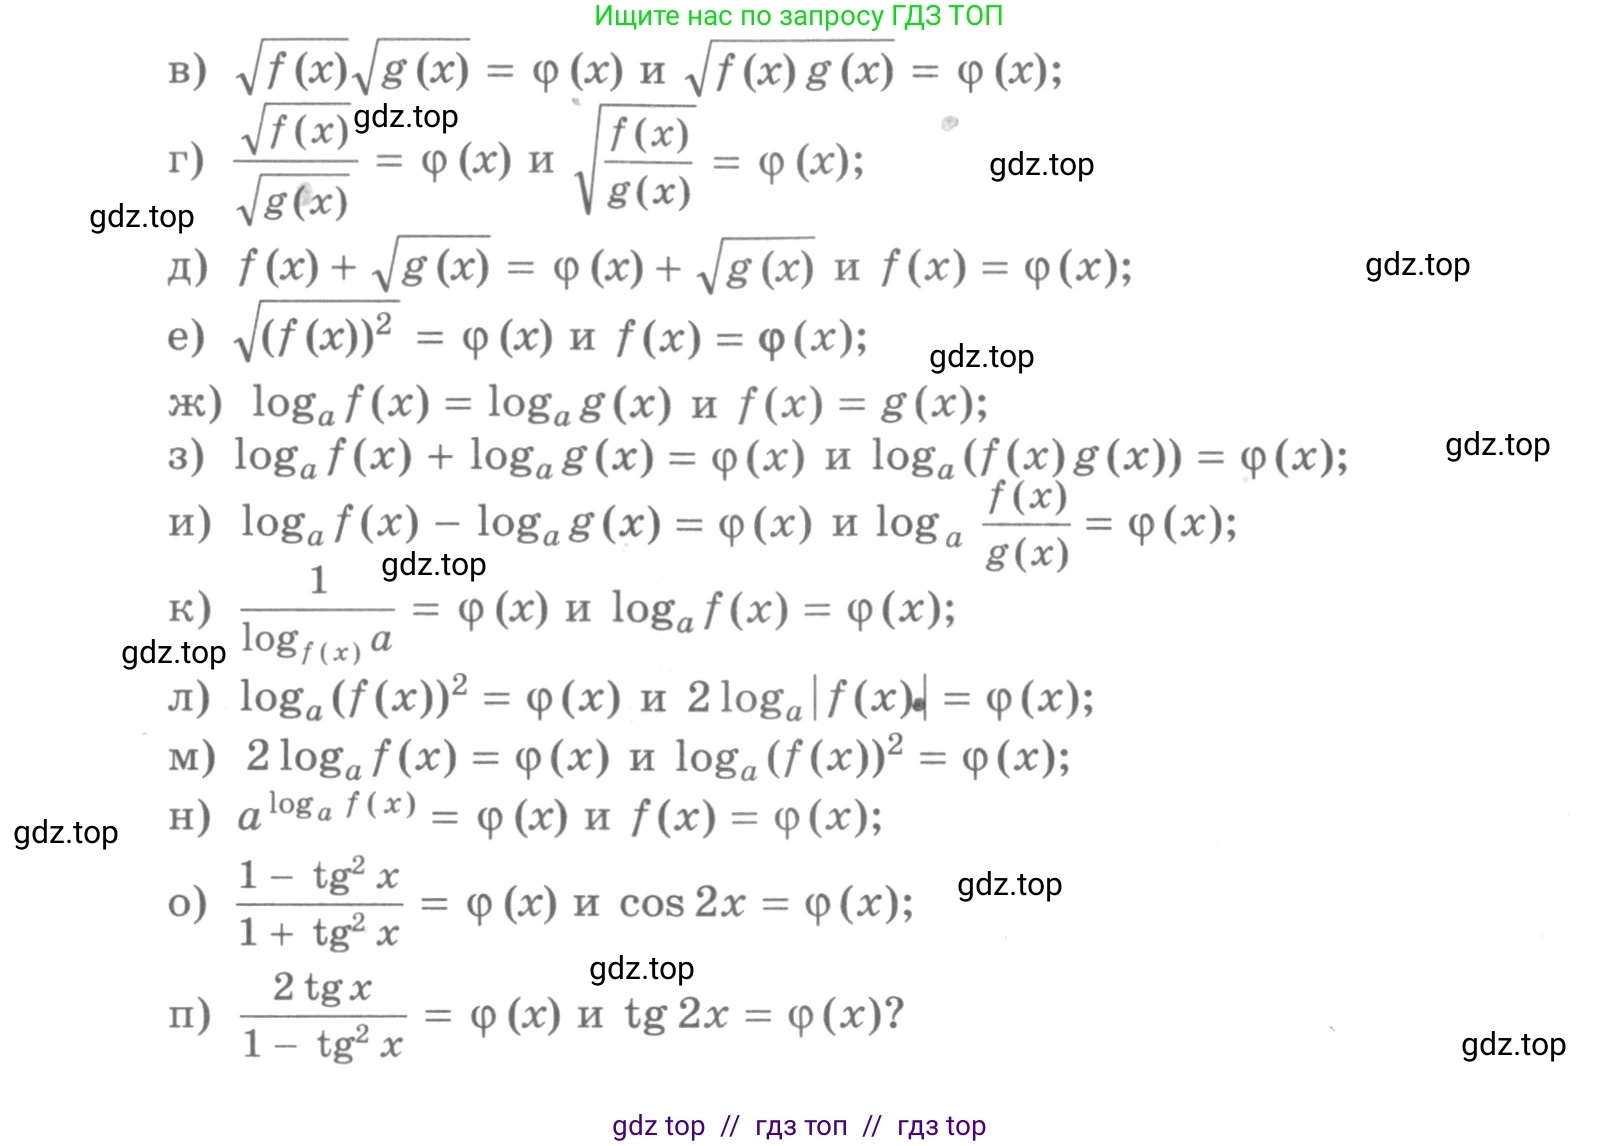 Ищите нас по запросу ГДЗ ТОП
в) √f(x)√g(x) = φ(x) и √f(x)g(x) = φ(x);
gdz.top
г) √f(x)/√g(x) = φ(x) и √(f(x)/g(x)) = φ(x);
gdz.top
gdz.top
д) f(x) + √g(x) = φ(x) + √g(x) и f(x) = φ(x);
gdz.top
е) √(f(x))² = φ(x) и f(x) = φ(x);
gdz.top
ж) logₐ f(x) = logₐ g(x) и f(x) = g(x);
з) logₐ f(x) + logₐ g(x) = φ(x) и logₐ (f(x)g(x)) = φ(x);
gdz.top
и) logₐ f(x) − logₐ g(x) = φ(x) и logₐ f(x)/g(x) = φ(x);
gdz.top
к) 1/log_f(x) a = φ(x) и logₐ f(x) = φ(x);
gdz.top
л) logₐ (f(x))² = φ(x) и 2 logₐ |f(x)| = φ(x);
м) 2 logₐ f(x) = φ(x) и logₐ (f(x))² = φ(x);
н) a^logₐ f(x) = φ(x) и f(x) = φ(x);
gdz.top
о) 1 − tg² x/1 + tg² x = φ(x) и cos 2x = φ(x);
gdz.top
gdz.top
п) 2 tg x/1 − tg² x = φ(x) и tg 2x = φ(x)?
gdz.top
gdz top // гдз топ // gdz top